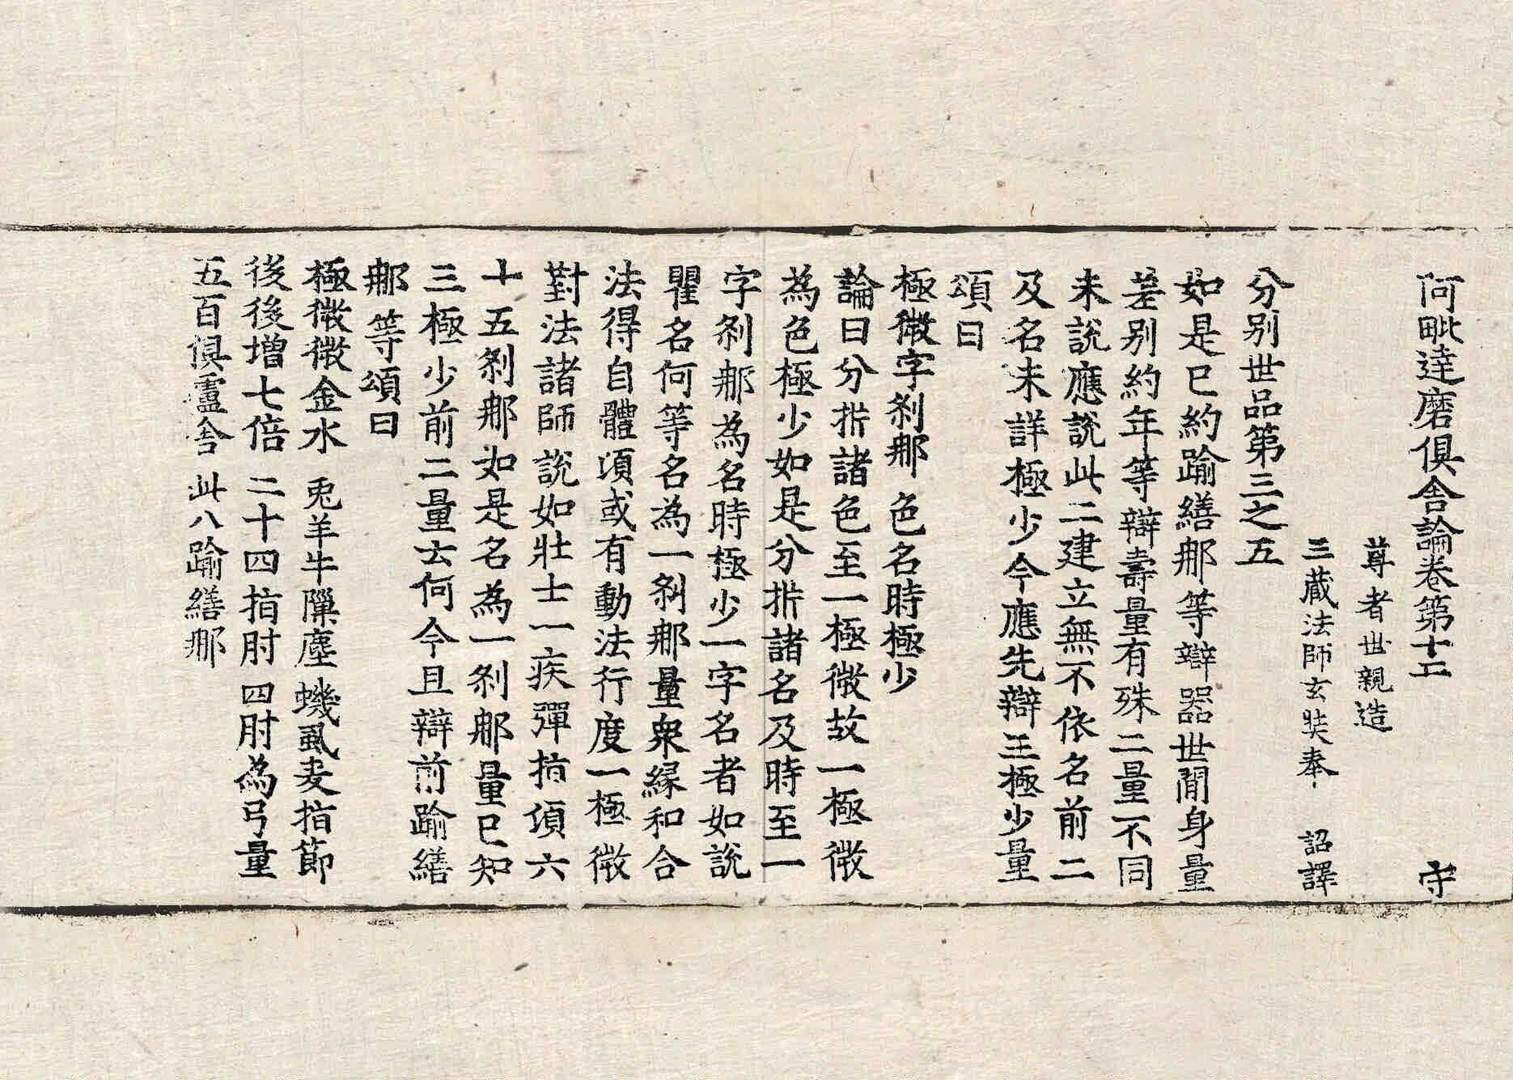 阿毗達磨俱舍論卷第十二 守
尊者世親造
三藏法師玄奘奉 詔譯
分別世品第三之五
如是已約踰繕那等辯器世間身量
差別約年等辯壽量有殊二量不同
未說應說此二建立無不依名前二
及名未詳極少今應先辯三極少量
頌曰
極微字剎那 色名時極少
論曰分析諸色至一極微故一極微
為色極少如是分析諸名及時至一
字剎那為名時極少一字名者如說
瞿名何等名為一剎那量衆緣和合
法得自體頃或有動法行度一極微
對法諸師說如壯士一疾彈指頃六
十五剎那如是名為一剎那量已知
三極少前二量云何今且辯前踰繕
那等頌曰
極微微金水 兎羊牛隟塵 蟣虱麦指節
後後增七倍 二十四指肘 四肘為弓量
五百俱盧舍 此八踰繕那